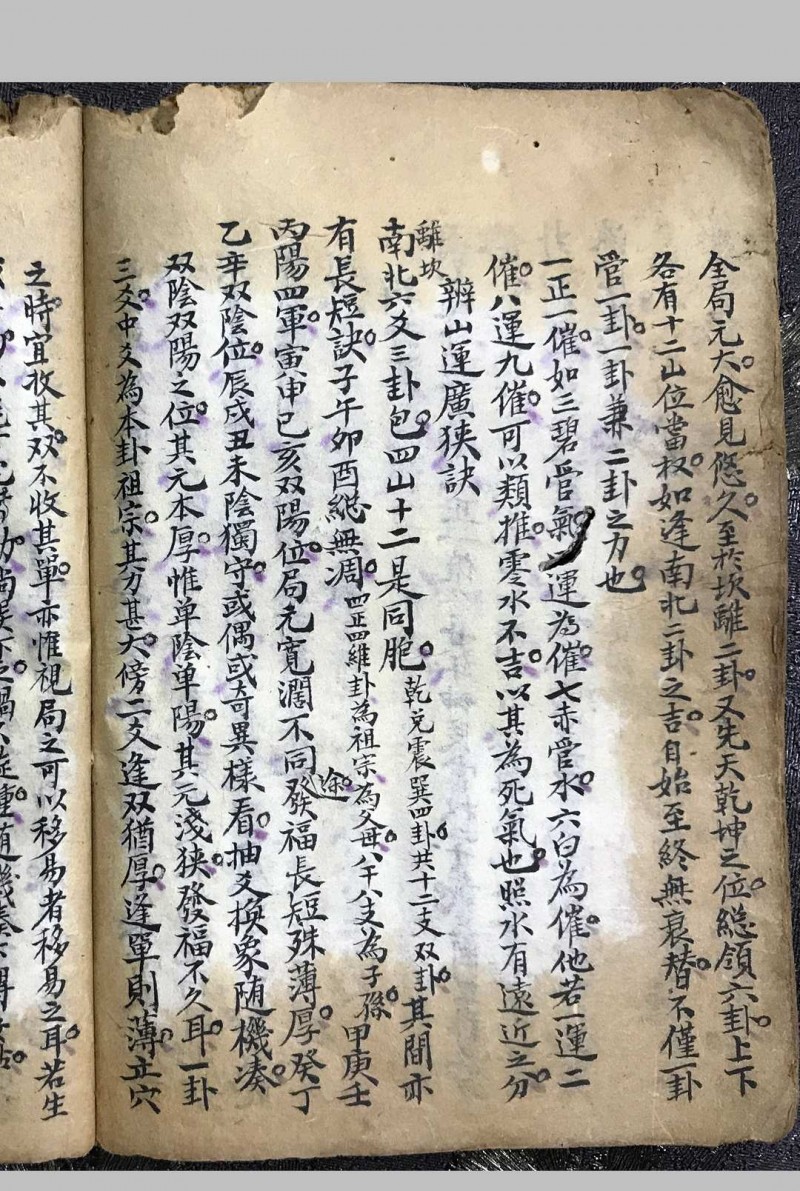 全局元大愈見悠久至於坎離二卦又先天乾坤之位總領六卦上下
各有十二山位當权如逢南北二卦之吉自始至終無衰替不僅一卦
管一卦一卦兼二卦之力也
一正一催如三碧管氣運為催七赤管水六白為催他若一運二
催八運九催可以類推零水不吉以其為死氣也照水有遠近之分
辨山運廣狹訣
離坎
南北六爻三卦包四山十二是同胞乾兌震巽四卦共十二支双卦其間亦
有長短訣子午卯酉總無凋四正四維卦為祖宗為父母八干八支為子孫甲庚壬
丙陽四軍寅申巳亥双陽位局元寬濶不同途發福長短殊薄厚癸丁
乙辛双陰位辰戌丑未陰獨守或偶或奇異樣看抽爻換象随機凑
双陰双陽之位其元本厚惟单陰单陽其元淺狹發福不久耳一卦
三爻中爻為本卦祖宗其力甚大傍二支逢双猶厚逢單則薄立穴
之時宜收其双不收其單亦惟視局之可以移易者移易之耳若生